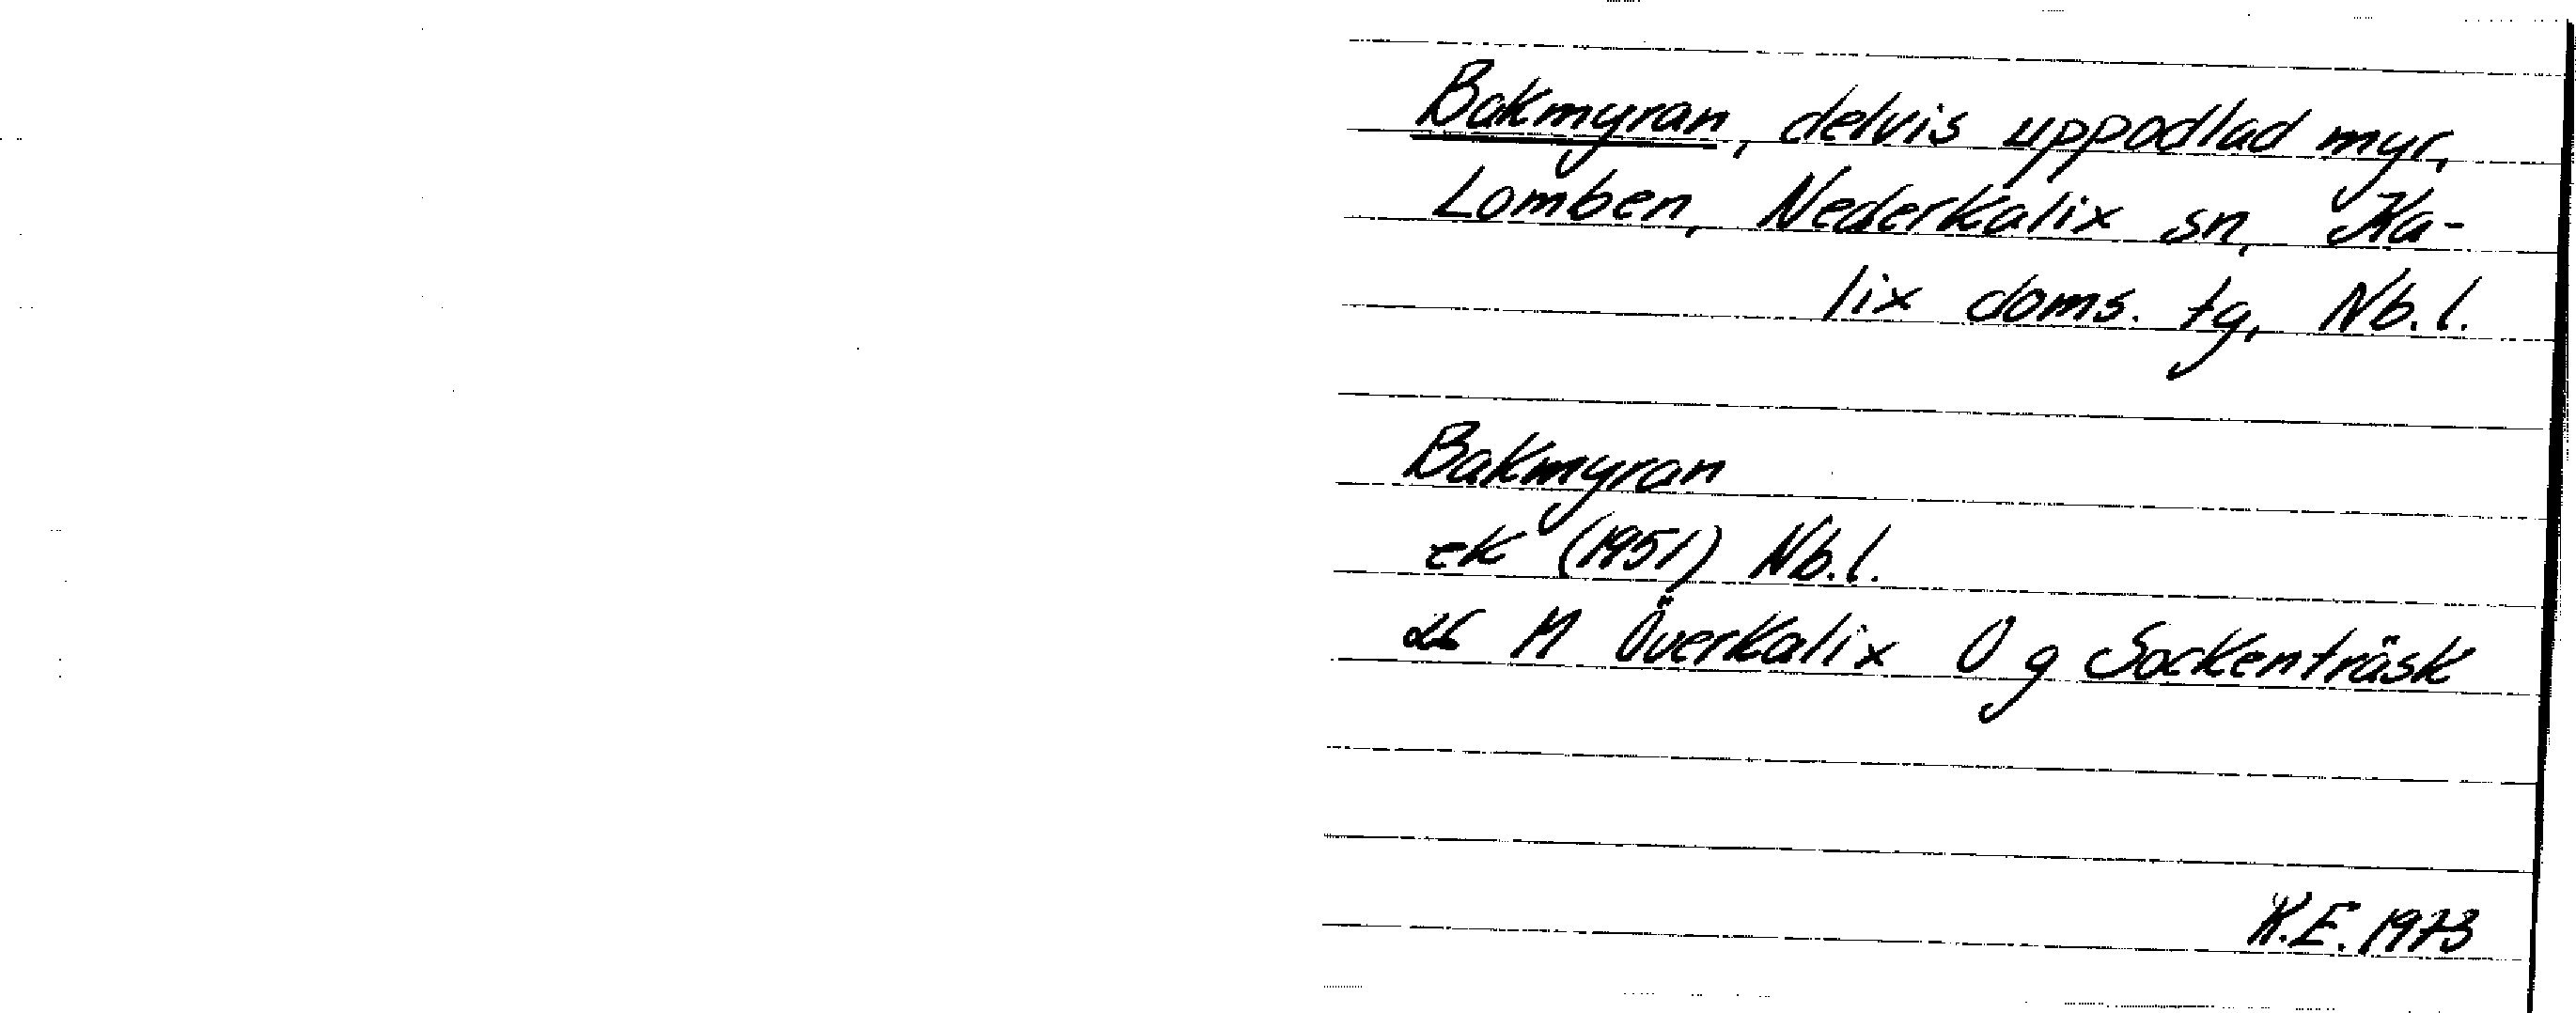 Bakmyran, delvis uppodlad myr,
Lomben, Nederkalix sn, Ka-
lix doms. tg, Nb.l.
Bakmyran
ek (1951) Nb.l.
26 M Överkalix Ö g Sockenträsk
K.E. 1973